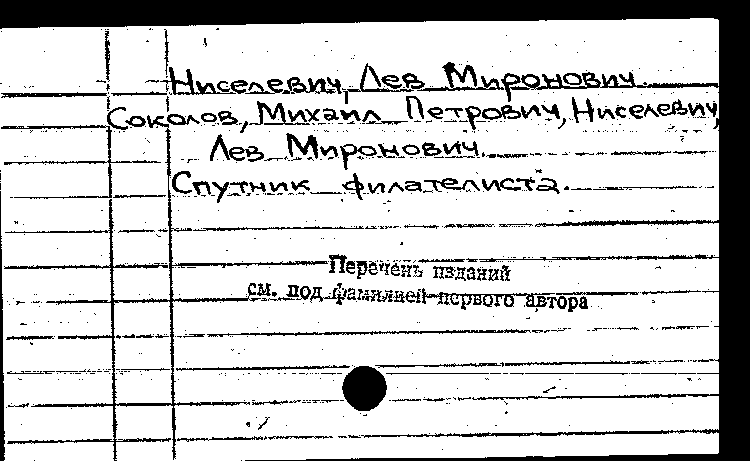 Ниселевич, Лев Миронович.
Соколов, Михаил Петрович, Ниселевич,
Лев Миронович.
Спутник филателиста.
Перечень изданий
см. под фамилией первого автора